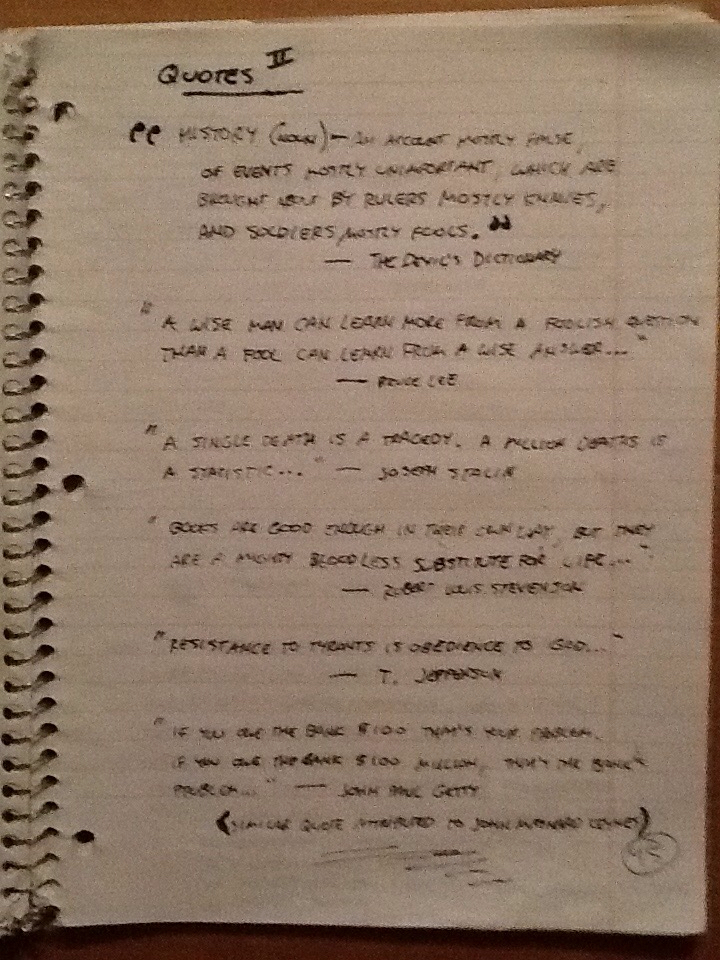 QUOTES II
" HISTORY (NOUN) — AN ACCOUNT MOSTLY FALSE,
OF EVENTS MOSTLY UNIMPORTANT, WHICH ARE
BROUGHT ABOUT BY RULERS MOSTLY KNAVES,
AND SOLDIERS, MOSTLY FOOLS. "
— THE DEVIL'S DICTIONARY
" A WISE MAN CAN LEARN MORE FROM A FOOLISH QUESTION
THAN A FOOL CAN LEARN FROM A WISE ANSWER... "
— BRUCE LEE
" A SINGLE DEATH IS A TRAGEDY. A MILLION DEATHS IS
A STATISTIC... " — JOSEPH STALIN
" BOOKS ARE GOOD ENOUGH IN THEIR OWN WAY, BUT THEY
ARE A MIGHTY BLOODLESS SUBSTITUTE FOR LIFE... "
— ROBERT LOUIS STEVENSON
" RESISTANCE TO TYRANTS IS OBEDIENCE TO GOD... "
— T. JEFFERSON
" IF YOU OWE THE BANK $100 THAT'S YOUR PROBLEM.
IF YOU OWE THE BANK $100 MILLION, THAT'S THE BANK'S
PROBLEM... " — JOHN PAUL GETTY
(SIMILAR QUOTE ATTRIBUTED TO JOHN MAYNARD KEYNES)